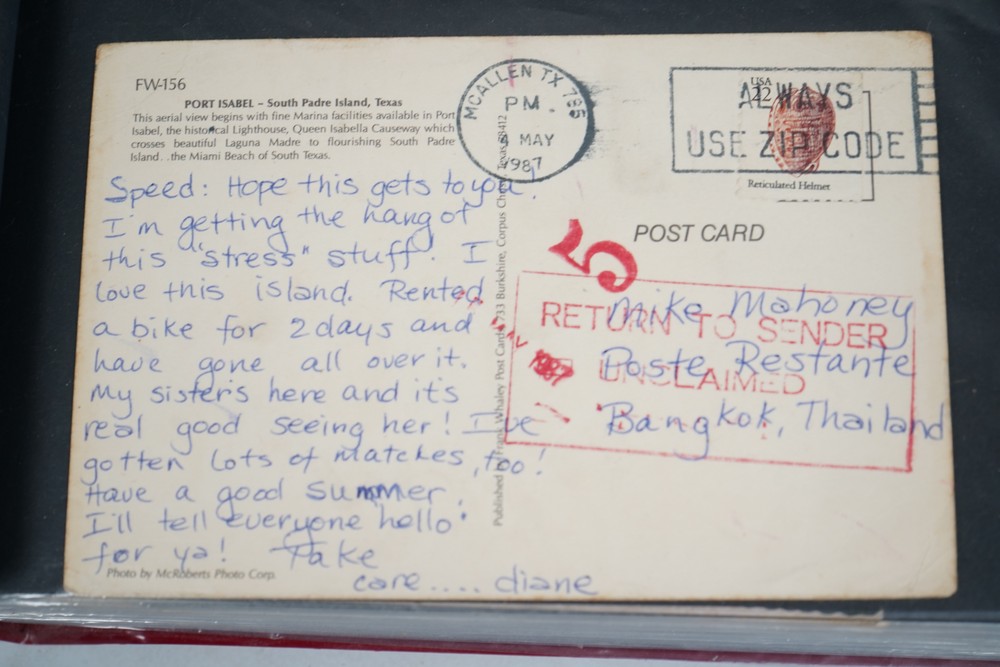 FW-156
PORT ISABEL – South Padre Island, Texas
This aerial view begins with fine Marina facilities available in Port
Isabel, the historical Lighthouse, Queen Isabella Causeway which
crosses beautiful Laguna Madre to flourishing South Padre
Island...the Miami Beach of South Texas.
Speed: Hope this gets to you!
I'm getting the hang of
this "stress" stuff! I
love this island. Rented
a bike for 2 days and
have gone all over it.
My sister's here and it's
real good seeing her! I've
gotten lots of matches, too!
Have a good summer.
I'll tell everyone hello
for ya! Take
care.... diane
Photo by McRoberts Photo Corp.
Published by Frank Whaley Post Cards, 733 Burkshire, Corpus Christi, Texas 78412
MCALLEN TX 785
PM
4 MAY
1987
ALWAYS
USE ZIP CODE
USA
22
Reticulated Helmet
POST CARD
5
RETURN TO SENDER
UNCLAIMED
1987
Mike Mahoney
Poste Restante
Bangkok, Thailand